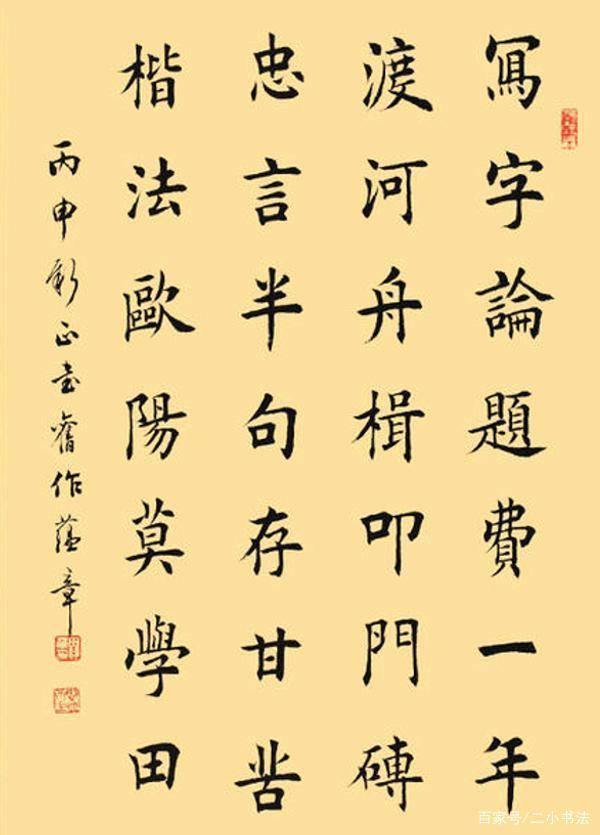 冩字論題費一年
渡河舟楫叩門磚
忠言半句存甘苦
楷法歐陽莫學田
丙申新正書舊作蘊章
百家号/二小书法